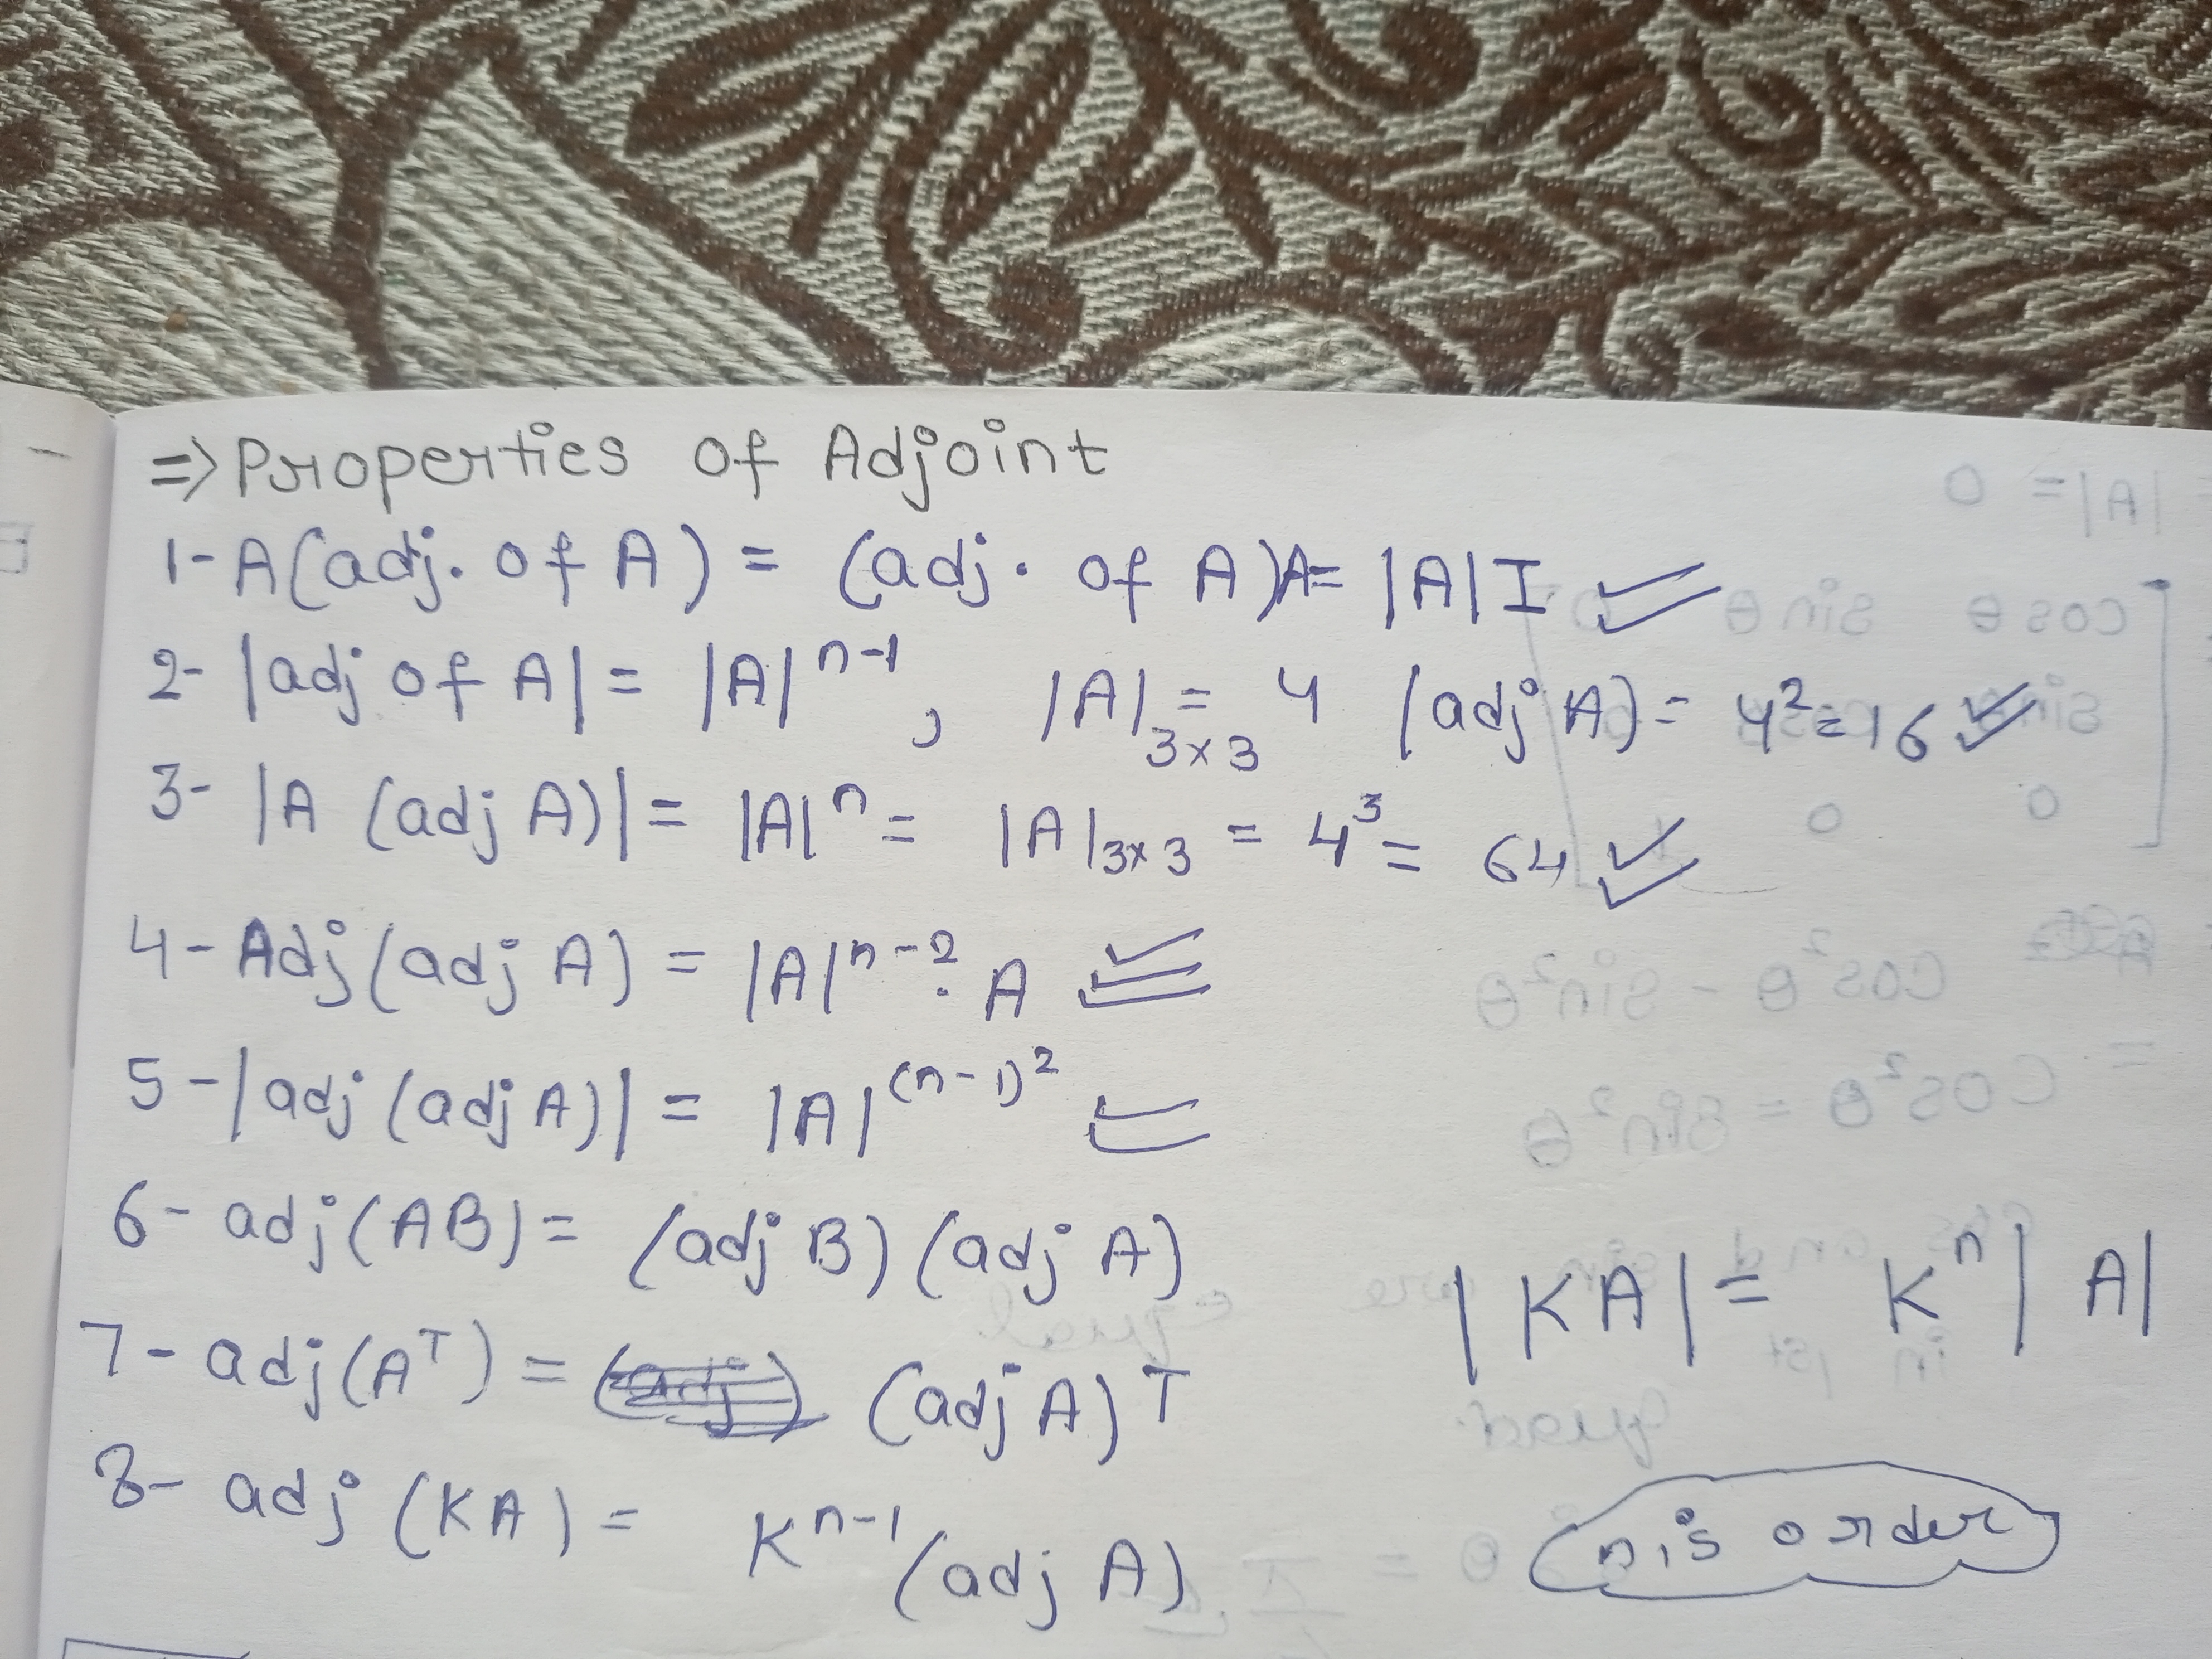 => Properties of Adjoint
1- A(adj. of A) = (adj. of A)A= |A| I
2- |adj of A| = |A|ⁿ⁻¹, |A|₃ₓ₃ = 4 |adj A| = 4² = 16
3- |A (adj A)| = |A|ⁿ = |A|₃ₓ₃ = 4³ = 64
4- Adj(adj A) = |A|ⁿ⁻² . A
5- |adj (adj A)| = |A|⁽ⁿ⁻¹⁾²
6- adj(AB) = (adj B) (adj A)
|KA| = Kⁿ |A|
7- adj(Aᵀ) = (adj A)ᵀ
8- adj (KA) = Kⁿ⁻¹ (adj A)
n is order